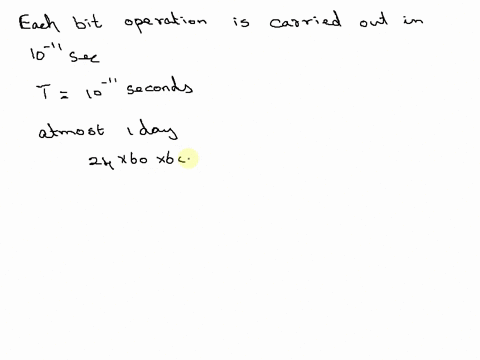 Each bit operation is carried out in
10⁻¹¹ sec
T = 10⁻¹¹ seconds
atmost 1 day
24 x 60 x 6